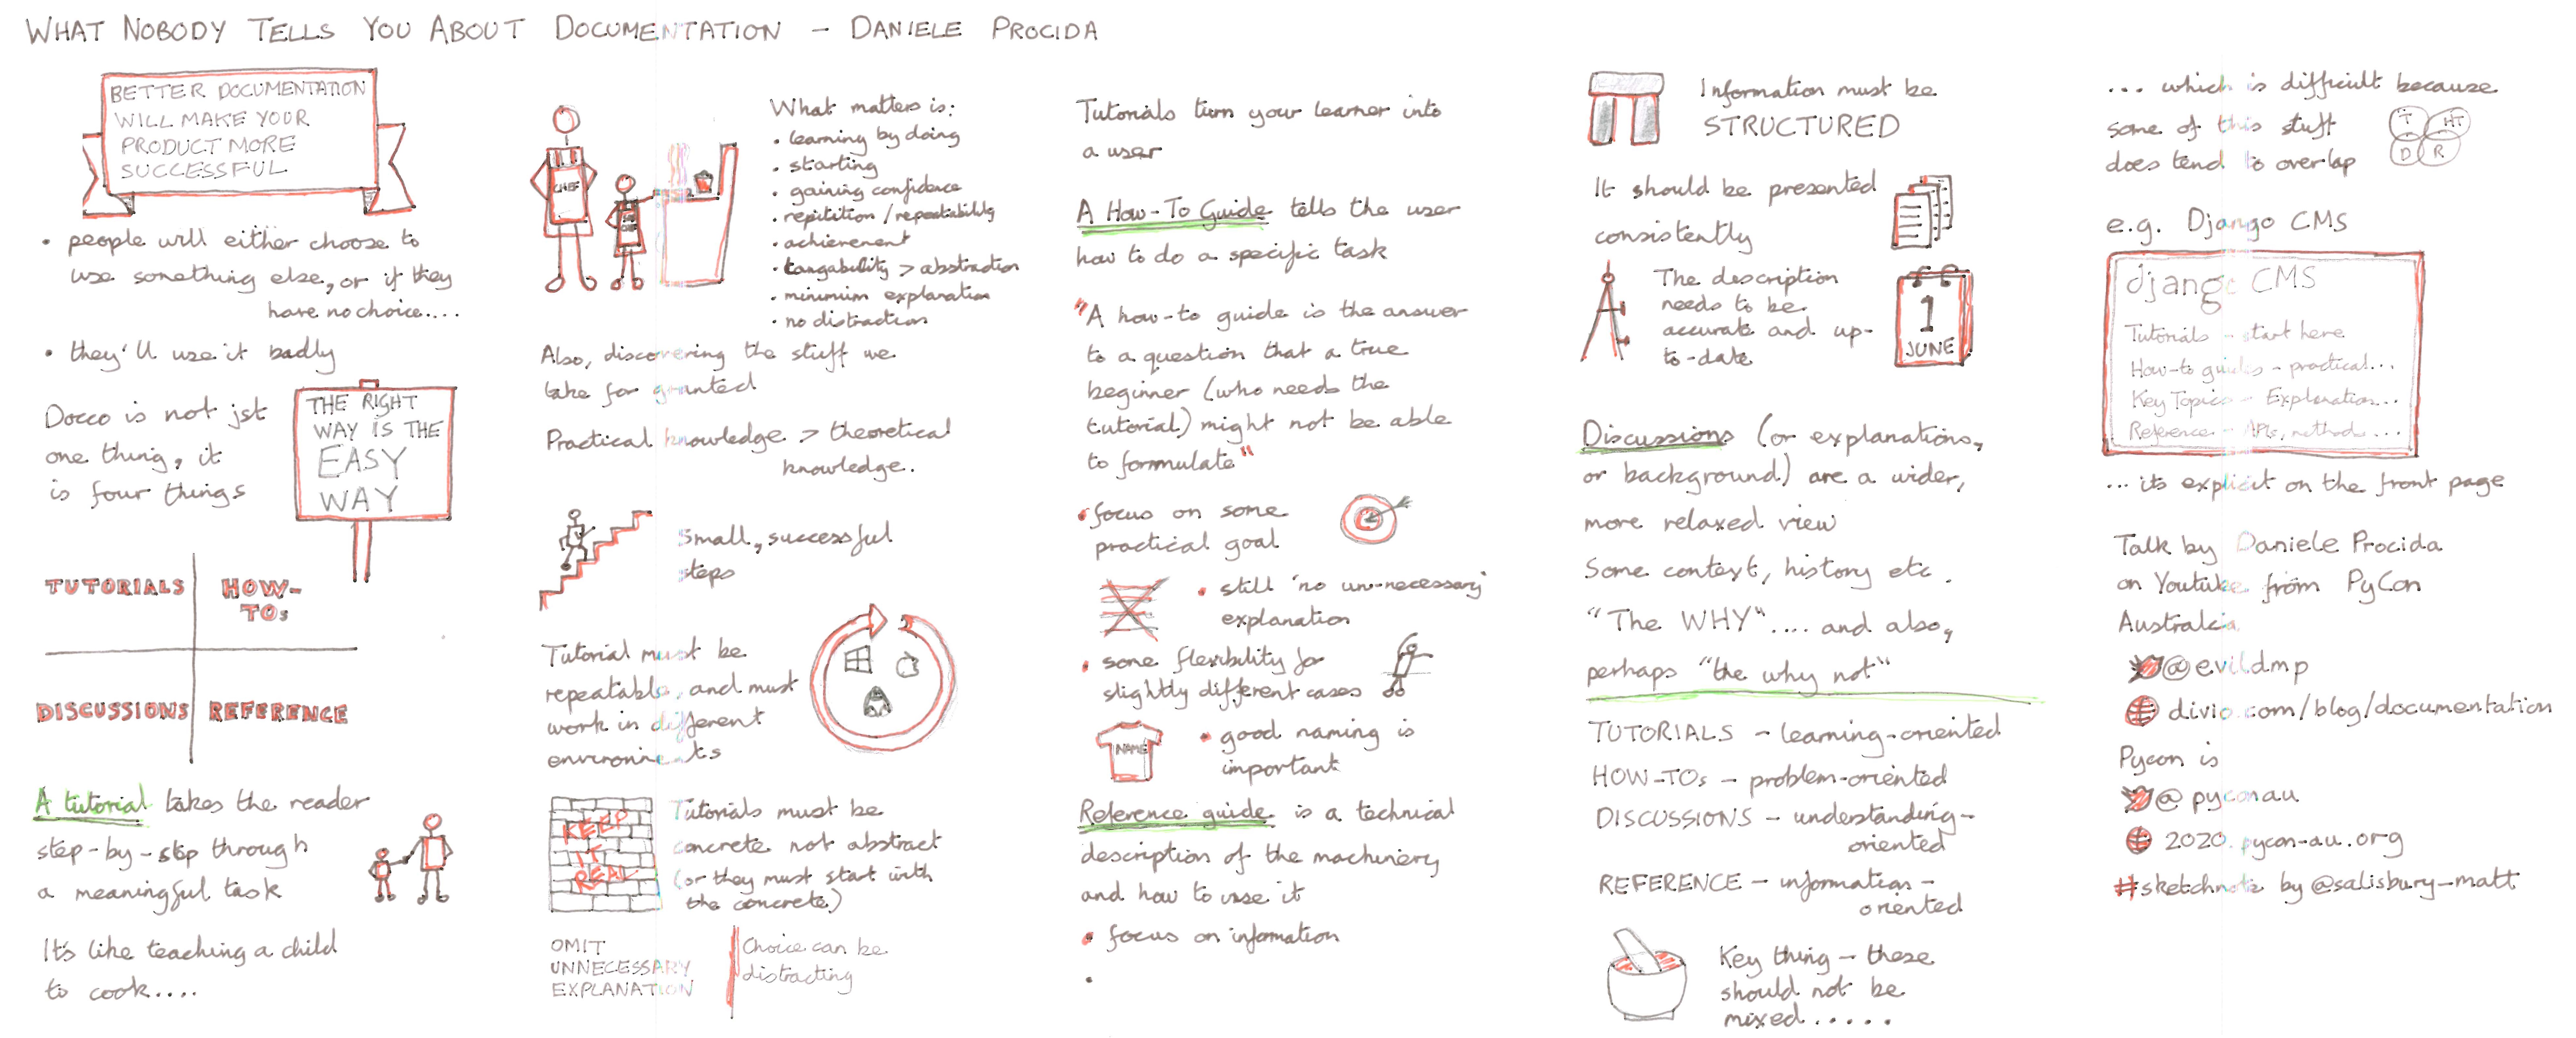 WHAT NOBODY TELLS YOU ABOUT DOCUMENTATION - DANIELE PROCIDA
BETTER DOCUMENTATION
WILL MAKE YOUR
PRODUCT MORE
SUCCESSFUL
• people will either choose to
use something else, or if they
have no choice....
• they'll use it badly
Docco is not jst
one thing, it
is four things
THE RIGHT
WAY IS THE
EASY
WAY
TUTORIALS
HOW-
TOs
DISCUSSIONS
REFERENCE
A tutorial takes the reader
step-by-step through
a meaningful task
It's like teaching a child
to cook....
CHEF
CHEF
What matters is:
• learning by doing
• starting
• gaining confidence
• repitition/repeatability
• achievement
• tangability > abstraction
• minimum explanation
• no distraction
Also, discovering the stuff we
take for granted
Practical knowledge > theoretical
knowledge.
Small, successful
steps
Tutorial must be
repeatable, and must
work in different
environments
KEEP
IT
REAL
Tutorials must be
concrete not abstract
(or they must start with
the concrete)
OMIT
UNNECESSARY
EXPLANATION
Choice can be
distracting
Tutorials turn your learner into
a user
A How-To Guide tells the user
how to do a specific task
"A how-to guide is the answer
to a question that a true
beginner (who needs the
tutorial) might not be able
to formulate"
• focus on some
practical goal
• still 'no un-necessary'
explanation
• some flexibility for
slightly different cases
NAME
• good naming is
important
Reference guide is a technical
description of the machinery
and how to use it
• focus on information
•
Information must be
STRUCTURED
It should be presented
consistently
The description
needs to be
accurate and up-
to-date
1
JUNE
Discussions (or explanations,
or background) are a wider,
more relaxed view
Some context, history etc.
"The WHY".... and also,
perhaps "the why not"
TUTORIALS - learning-oriented
HOW-TOs - problem-oriented
DISCUSSIONS - understanding-
oriented
REFERENCE - information-
oriented
Key thing - these
should not be
mixed.....
... which is difficult because
some of this stuff
does tend to overlap
T HT
D R
e.g. Django CMS
django CMS
Tutorials - start here
How-to guides - practical...
Key Topics - Explanation...
Reference - APIs, methods...
... its explicit on the front page
Talk by Daniele Procida
on Youtube from PyCon
Australia
@evildmp
divio.com/blog/documentation
Pycon is
@pyconau
2020.pycon-au.org
#sketchnote by @salisbury_matt